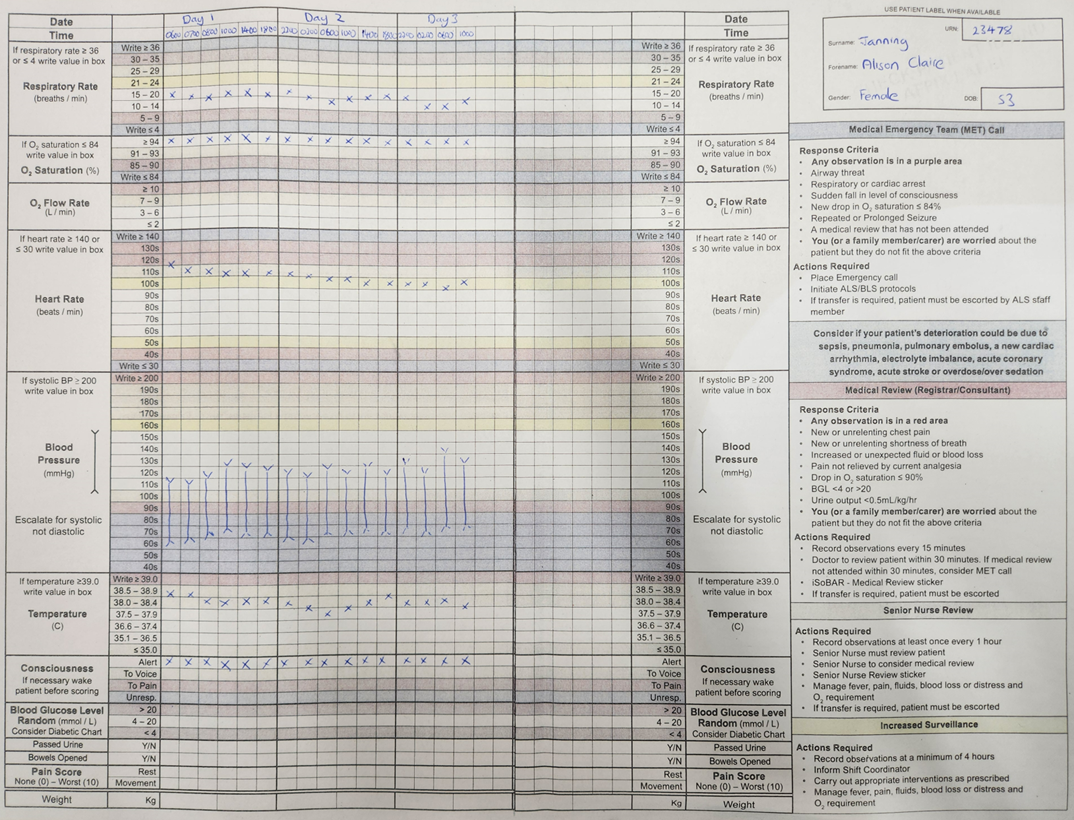 USE PATIENT LABEL WHEN AVAILABLE
URN: 23478
Surname: Janning
Forename: Alison Claire
Gender: Female
DOB: 53
Date Day 1 Day 2 Day 3 Date
Time Time
If respiratory rate ≥ 36
or ≤ 4 write value in box
Respiratory Rate
(breaths / min)
Write ≥ 36
30 – 35
25 – 29
21 – 24
15 – 20
10 – 14
5 – 9
Write ≤ 4
If O₂ saturation ≤ 84
write value in box
O₂ Saturation (%)
≥ 94
91 – 93
85 – 90
Write ≤ 84
O₂ Flow Rate
(L / min)
≥ 10
7 – 9
3 – 6
≤ 2
If heart rate ≥ 140 or
≤ 30 write value in box
Heart Rate
(beats / min)
Write ≥ 140
130s
120s
110s
100s
90s
80s
70s
60s
50s
40s
Write ≤ 30
If systolic BP ≥ 200
write value in box
Blood
Pressure
(mmHg)
Escalate for systolic
not diastolic
Write ≥ 200
190s
180s
170s
160s
150s
140s
130s
120s
110s
100s
90s
80s
70s
60s
50s
40s
If temperature ≥39.0
write value in box
Temperature
(C)
Write ≥ 39.0
38.5 – 38.9
38.0 – 38.4
37.5 – 37.9
36.6 – 37.4
35.1 – 36.5
≤ 35.0
Consciousness
If necessary wake
patient before scoring
Alert
To Voice
To Pain
Unresp.
Blood Glucose Level
Random (mmol / L)
Consider Diabetic Chart
> 20
4 – 20
< 4
Passed Urine Y/N
Bowels Opened Y/N
Pain Score
None (0) – Worst (10)
Rest
Movement
Weight Kg
Write ≥ 36
30 – 35
25 – 29
21 – 24
15 – 20
10 – 14
5 – 9
Write ≤ 4
If respiratory rate ≥ 36
or ≤ 4 write value in box
Respiratory Rate
(breaths / min)
≥ 94
91 – 93
85 – 90
Write ≤ 84
If O₂ saturation ≤ 84
write value in box
O₂ Saturation (%)
≥ 10
7 – 9
3 – 6
≤ 2
O₂ Flow Rate
(L / min)
Write ≥ 140
130s
120s
110s
100s
90s
80s
70s
60s
50s
40s
Write ≤ 30
If heart rate ≥ 140 or
≤ 30 write value in box
Heart Rate
(beats / min)
Write ≥ 200
190s
180s
170s
160s
150s
140s
130s
120s
110s
100s
90s
80s
70s
60s
50s
40s
If systolic BP ≥ 200
write value in box
Blood
Pressure
(mmHg)
Escalate for systolic
not diastolic
Write ≥ 39.0
38.5 – 38.9
38.0 – 38.4
37.5 – 37.9
36.6 – 37.4
35.1 – 36.5
≤ 35.0
If temperature ≥39.0
write value in box
Temperature
(C)
Alert
To Voice
To Pain
Unresp.
Consciousness
If necessary wake
patient before scoring
> 20
4 – 20
< 4
Blood Glucose Level
Random (mmol / L)
Consider Diabetic Chart
Y/N Passed Urine
Y/N Bowels Opened
Rest
Movement
Pain Score
None (0) – Worst (10)
Kg Weight
Medical Emergency Team (MET) Call
Response Criteria
• Any observation is in a purple area
• Airway threat
• Respiratory or cardiac arrest
• Sudden fall in level of consciousness
• New drop in O₂ saturation ≤ 84%
• Repeated or Prolonged Seizure
• A medical review that has not been attended
• You (or a family member/carer) are worried about the
patient but they do not fit the above criteria
Actions Required
• Place Emergency call
• Initiate ALS/BLS protocols
• If transfer is required, patient must be escorted by ALS staff
member
Consider if your patient's deterioration could be due to
sepsis, pneumonia, pulmonary embolus, a new cardiac
arrhythmia, electrolyte imbalance, acute coronary
syndrome, acute stroke or overdose/over sedation
Medical Review (Registrar/Consultant)
Response Criteria
• Any observation is in a red area
• New or unrelenting chest pain
• New or unrelenting shortness of breath
• Increased or unexpected fluid or blood loss
• Pain not relieved by current analgesia
• Drop in O₂ saturation ≤ 90%
• BGL <4 or >20
• Urine output <0.5mL/kg/hr
• You (or a family member/carer) are worried about the
patient but they do not fit the above criteria
Actions Required
• Record observations every 15 minutes
• Doctor to review patient within 30 minutes. If medical review
not attended within 30 minutes, consider MET call
• iSoBAR - Medical Review sticker
• If transfer is required, patient must be escorted
Senior Nurse Review
Actions Required
• Record observations at least once every 1 hour
• Senior Nurse must review patient
• Senior Nurse to consider medical review
• Senior Nurse Review sticker
• Manage fever, pain, fluids, blood loss or distress and
O₂ requirement
• If transfer is required, patient must be escorted
Increased Surveillance
Actions Required
• Record observations at a minimum of 4 hours
• Inform Shift Coordinator
• Carry out appropriate interventions as prescribed
• Manage fever, pain, fluids, blood loss or distress and
O₂ requirement